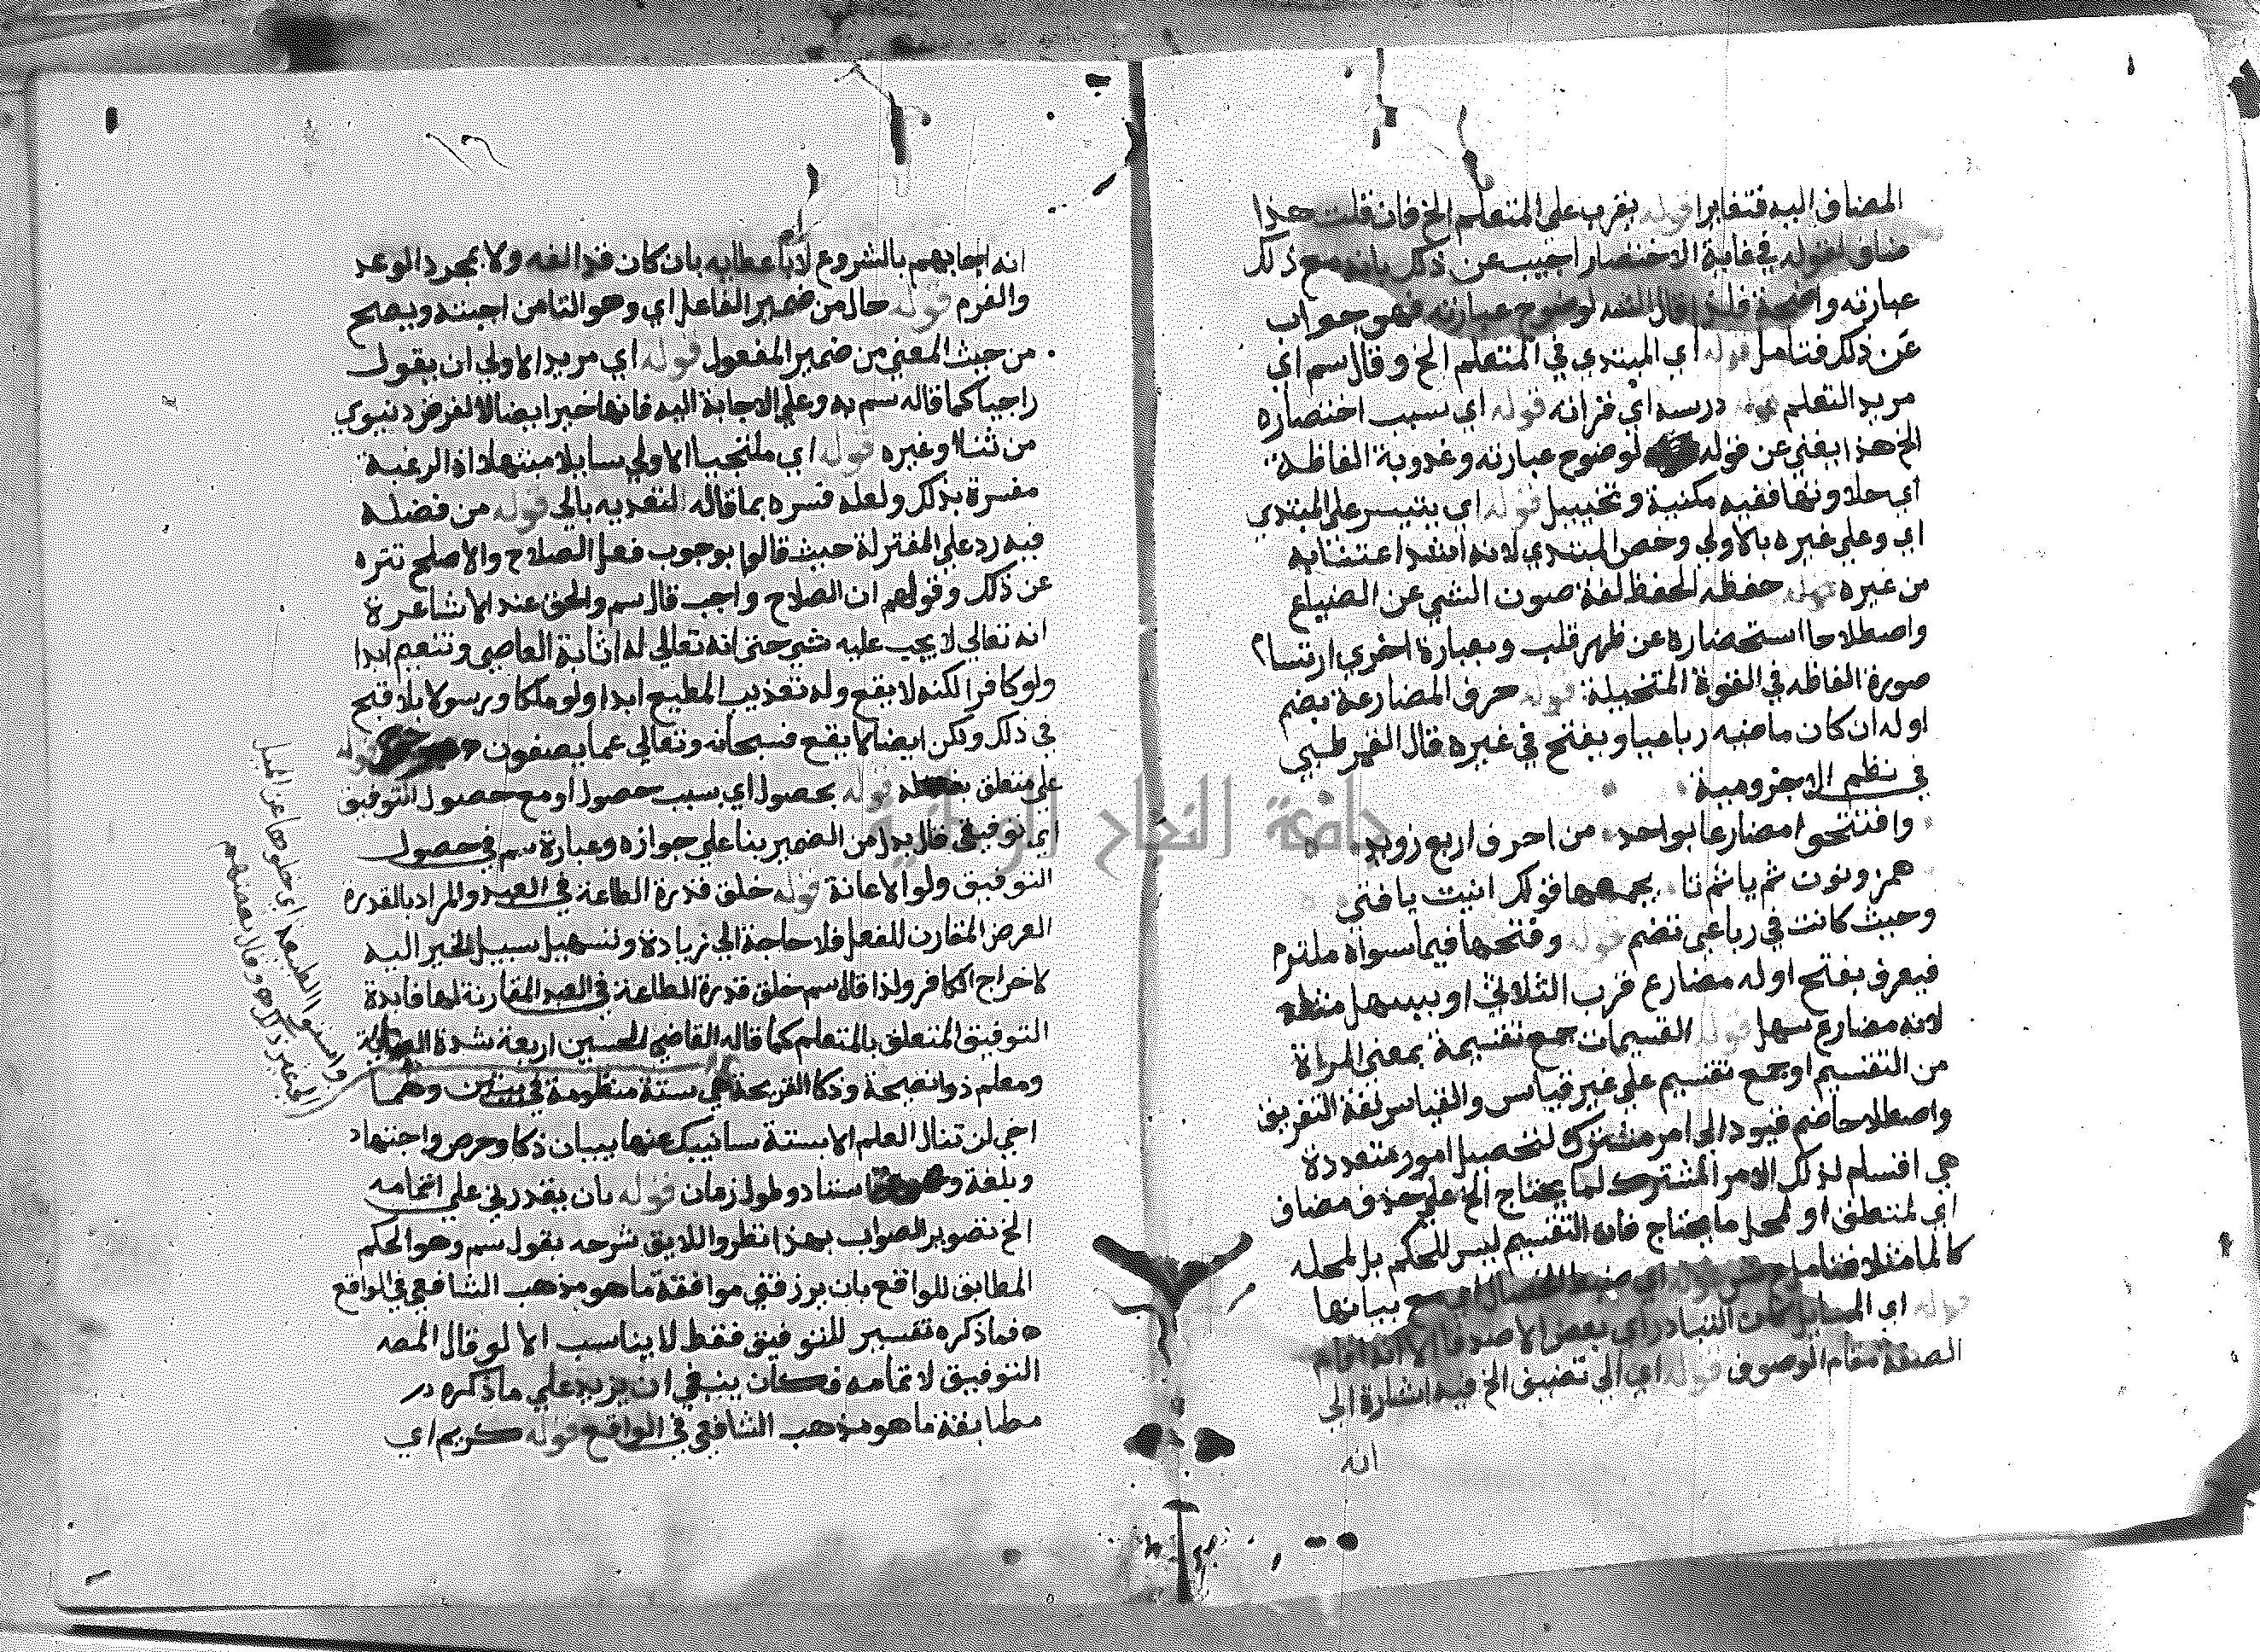 المضاف اليه فتغايرا قوله يقرب على المتعلم الخ فان قلت هذا
مناف لقوله في غاية الاختصار اجيب عن ذلك بانه مع ذلك
عبارته واضحة فلذا قال الش لوضوح عبارته فهو جواب
عن ذلك فتامل قوله اي المبتدي في المتعلم الخ وقال سم اي
مريد التعلم قوله درسه اي قراته قوله اي بسبب اختصاره
الخ هذا يغني عن قوله لوضوح عبارته وعذوبة الفاظه
اي حلاوتها ففيه مكنية وتخييل قوله اي يتيسر على المبتدي
اي وعلي غيره بالاولي وخص المبتدي لانه اشد اعتنا به
من غيره قوله حفظه الحفظ لغة صون الشي عن الضياع
واصطلاحا استحضاره عن ظهر قلب وبعبارة اخري ارتسام
صورة الفاظه في القوة المتخيلة قوله حرف المضارعة يضم
اوله ان كان ماضيه رباعيا ويفتح في غيره قال القرطبي
في نظم الاجرومية
وافتتحوا مضارعا بواحد من احرف اربع زوايد
همز ونون ثم يا ثم تا يجمعها قولك انيت يا فتي
وحيث كانت في رباعي تضم قوله وفتحها فيما سواه ملتزم
فيعرف بفتح اوله مضارع قرب الثلاثي او يسهل
لانه مضارع سهل قوله القسيمات جمع تقسيمة بمعنى المراة
من التقسيم او جمع تقسيم علي غير قياس والقياس لغة التفريق
واصطلاحا ضم قيود الى امر مشترك لتحصيل امور متعددة
هي اقسام لذلك الامر المشترك لما يحتاج الخ علي حذف مضاف
اي لمتعلق او لمحل ما يحتاج فان التقسيم ليس للحكم بل لمحله
كالما مثلا فتامل اي ضبط الخصال اي مع بيانها
قوله اي المسايل كان التبادر اي بعض الاصدقا الا انه اقام
الصفة مقام الموصوف قوله اي الى تصنيف الخ فيه اشارة الى
انه
انه اجابهم بالشروع لا باعطايه بان كان قد الفه ولا بمجرد الوعد
والغرم قوله حال من ضمير الفاعل اي وهو التا من اجبت ويصح
من حيث المعني من ضمير المفعول قوله اي مريدا الاولي ان يقول
راجيا كما قاله سم به وعلي الاجابة اليه فانها خير ايضا لا لغرض دنيوي
من ثنا او غيره قوله اي ملتجيا الاولي سايلا مبتهلا اذ الرغبة
مفسرة بذلك ولعله فسره بما قاله لتعديه بالى قوله من فضله
فيه رد علي المعتزلة حيث قالوا بوجوب فعل الصلاح والاصلح تنزه
عن ذلك وقولهم ان الصلاح واجب قال سم والحق عند الاشاعرة
انه تعالي لا يجب عليه شي حتى انه تعالي له اثابة العاصي وتنعيم ابدا
ولو كافرا لكنه لا يقع وله تعذيب المطيع ابدا ولو ملكا ورسولا بلا قبح
في ذلك ولكن ايضا لا يقع فسبحانه وتعالي عما يصفون قوله
علي متعلق قوله بحصول اي بسبب حصول او مع حصول التوفيق
بدل من الضمير بنا علي جوازه وعبارة سم في حصول
التوفيق ولو الاعانة قوله خلق قدرة الطاعة في العبد والمراد بالقدرة
العرض المقارن للفعل فلا حاجة الى زيادة وتسهيل سبيل الخير اليه
لاخراج الكافر ولذا قال سم خلق قدرة الطاعة في العبد المقارنة لها فايدة
التوفيق المتعلق بالمتعلم كما قاله القاضي الحسين اربعة شدة العناية
ومعلم ذو نصيحة وذكا القريحة هي ستة منظومة في بيتين وهما
اخي لن تنال العلم الا بستة سانبيك عنها ببيان ذكا وحرص واجتهاد
وبلغة استاد وطول زمان قوله بان يقدرني علي اتمامه
الخ تصوير الصواب بهذا نظر واللايق شرحه بقول سم وهو الحكم
المطابق للواقع بان برزقني موافقة ما هو مذهب الشافعي في الواقع
فما ذكره تفسير للتوفيق فقط لا يناسب الا لو قال المصه
التوفيق لاتمامه فكان ينبغي ان يزيد علي ما ذكره
مطابقة ما هو مذهب الشافعي في الواقع قوله كريم اي
واستوا الطبيعة اي خلوها عن الميل